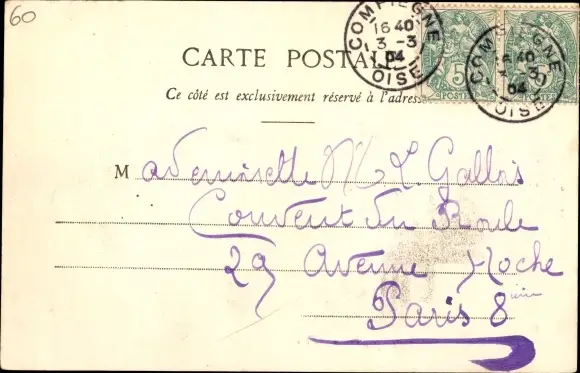 60
COMPIEGNE
16 40
3 -3
04
OISE
COMPIEGNE
16 40
04
OISE
5
POSTES
CARTE POSTALE
Ce côté est exclusivement réservé à l'adress
Mademoiselle M. L. Gallois
Couvent du Roule
29 Avenue Hoche
Paris 8 ième